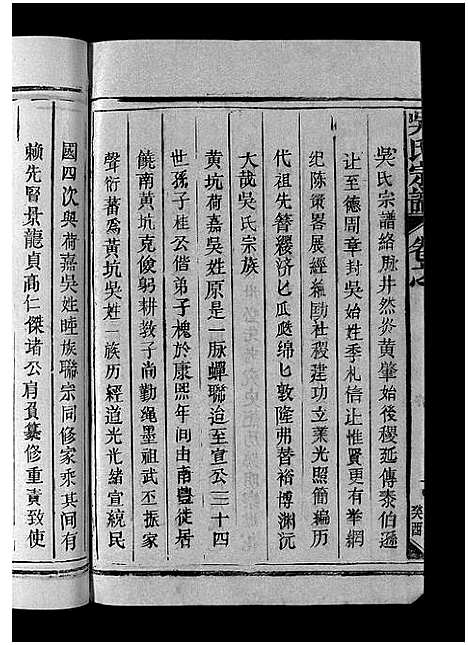 吳氏宗譜
吳氏宗譜絡脉井然炎黄肇始後稷延傳泰伯遜
让至德周章封吳始姓季札信让惟賢更有举網
纪陈策畧展經綸励社稷建功立業光照简编历
代祖先簪纓济匕瓜瓞綿匕敦隆弗替裕博渊沅
大哉吳氏宗族
黄坑荷嘉吳姓原是一脉蟬聯迨至宣公三十四
世孫子桂公偕弟子槐於康熙年间由南豐徒居
饒南黄坑克俊躬耕教子尚勤绳墨祖武丕振家
聲衍蕃爲黄坑吳姓一族历經道光光緒宣統民
國四次與荷嘉吳姓睦族聯宗同修家乘其间有
赖先賢景龍貞高仁傑堵公肩負纂修重責致使
癸酉